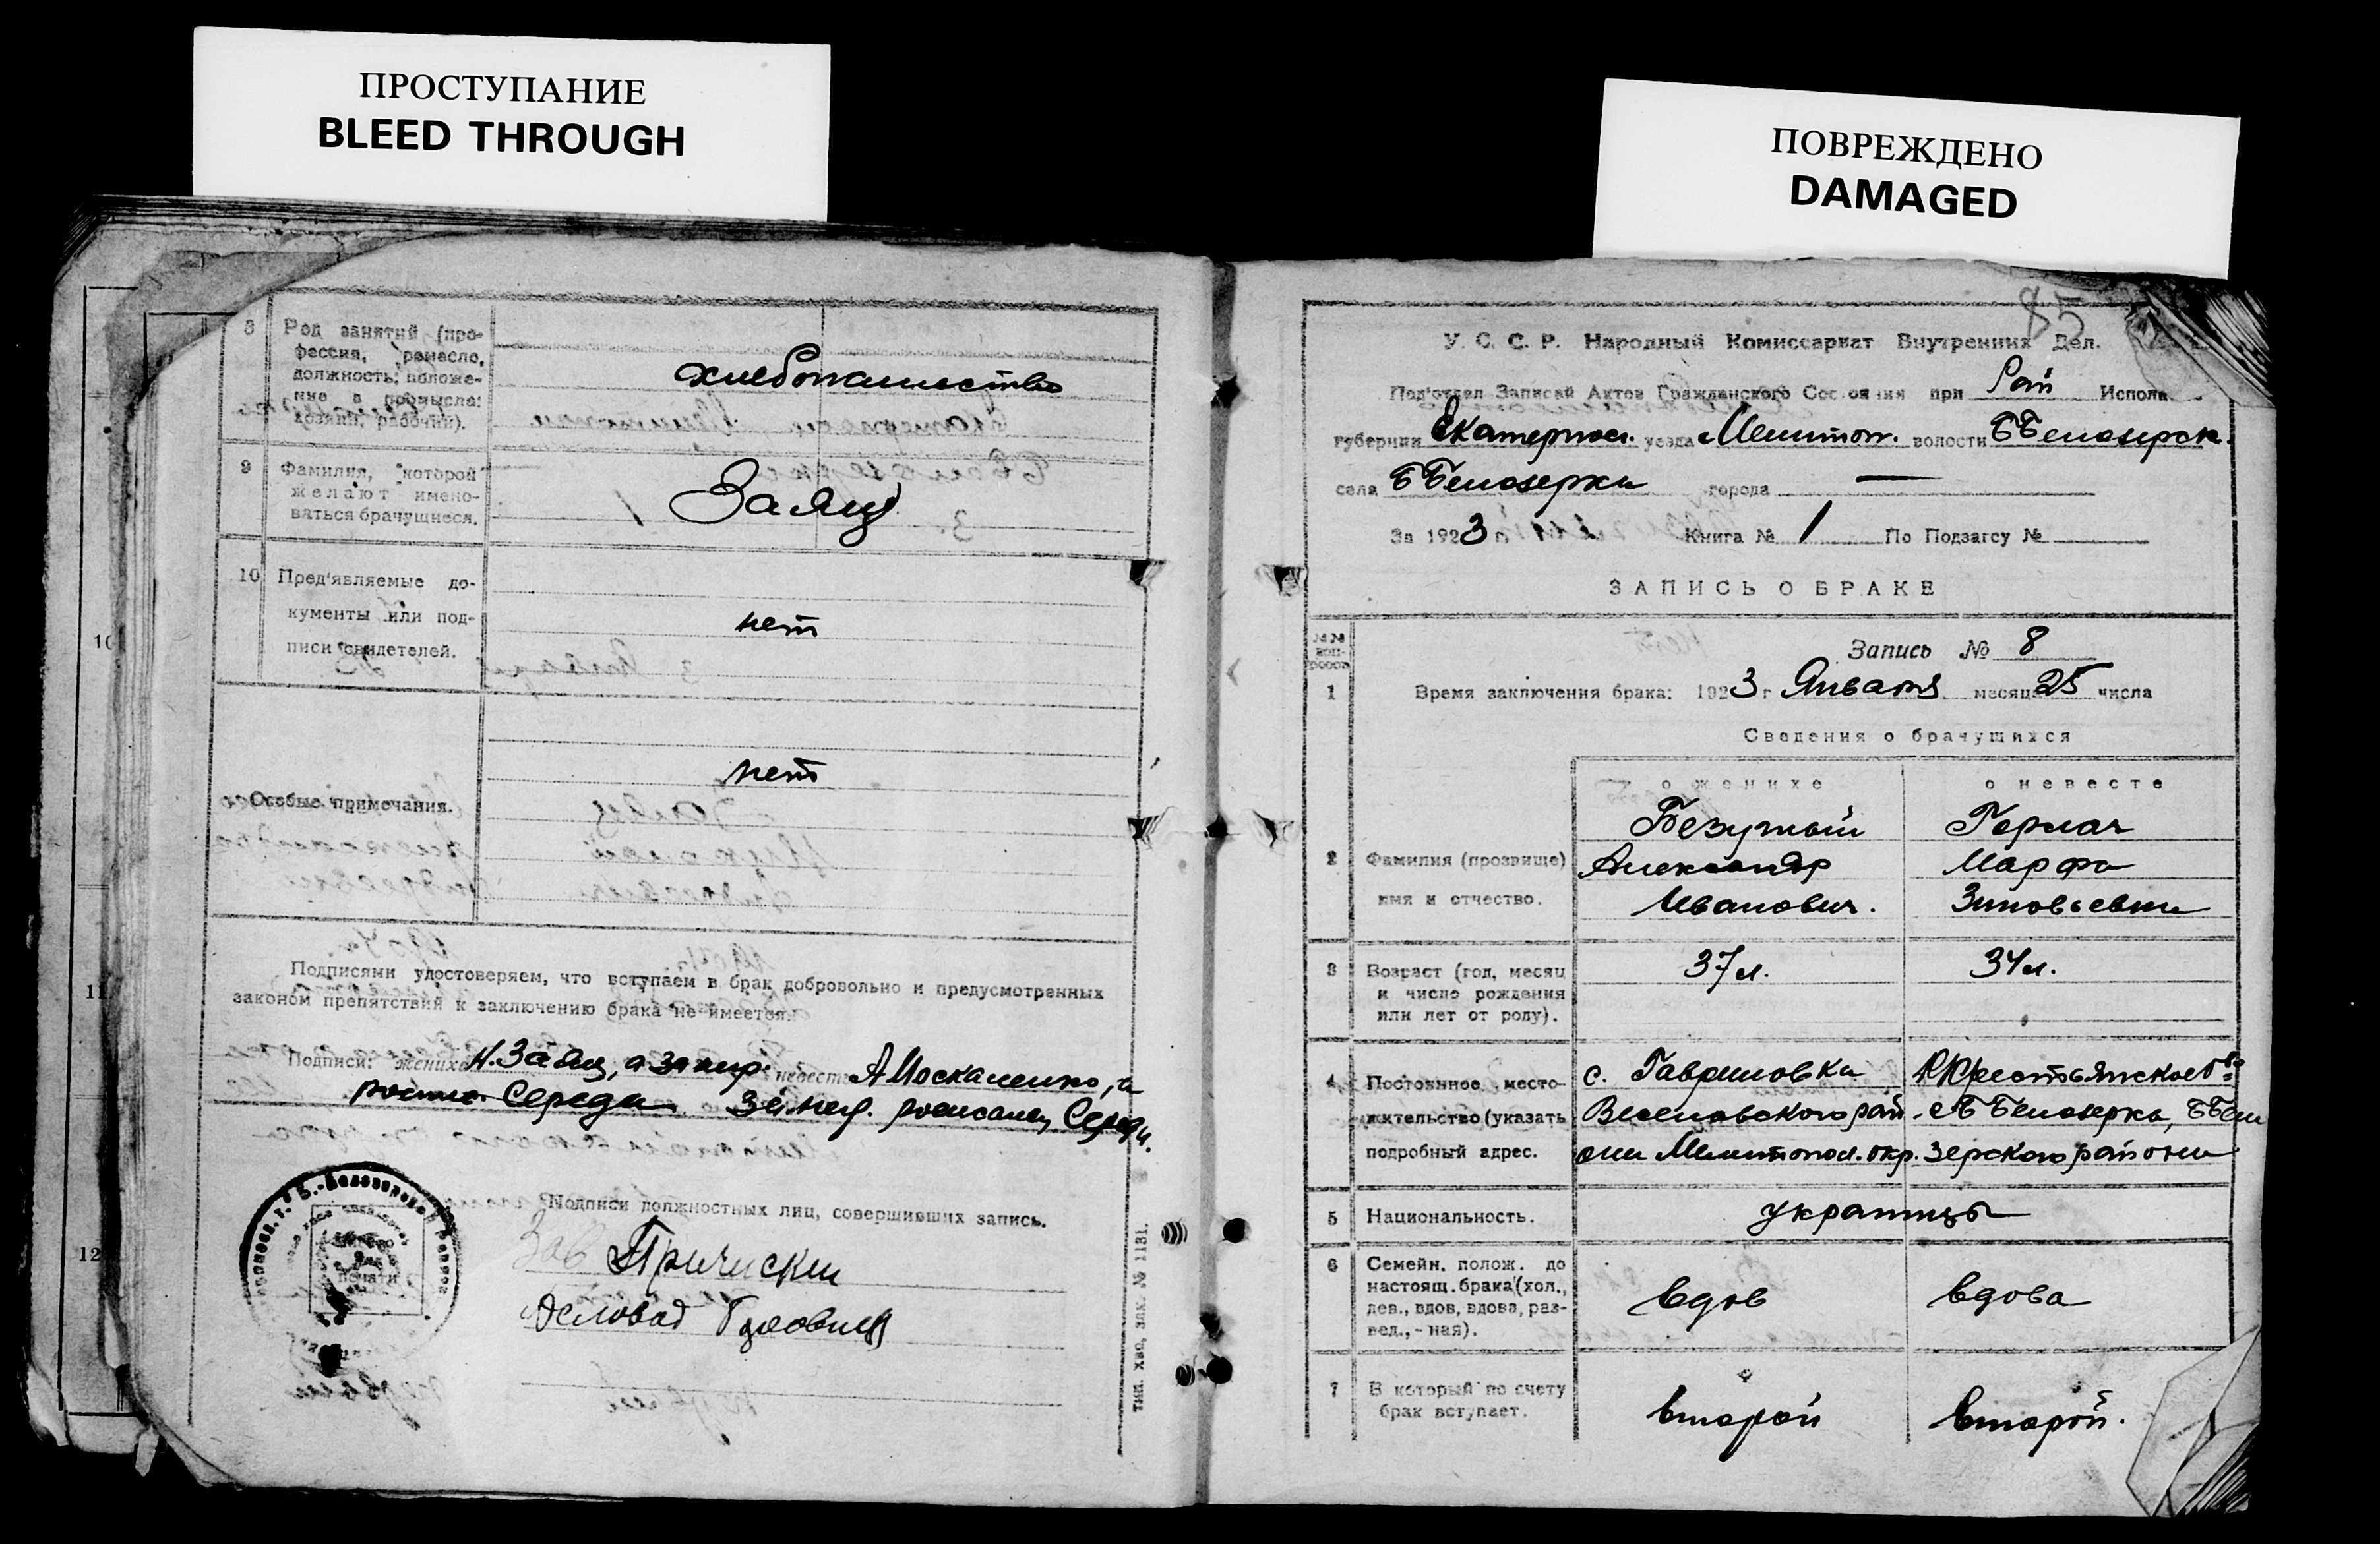 ПРОСТУПАНИЕ
BLEED THROUGH
ПОВРЕЖДЕНО
DAMAGED
8 Род занятий (про-
фессия, ремесло,
должность, положе-
ние в промысле:
хозяин, рабочий).
хлебопашество
9 Фамилия, которой
желают имено-
ваться брачущиеся.
Заяц
10 Пред'являемые до-
кументы или под-
писи свидетелей.
нет
Особые примечания.
нет
Подписями удостоверяем, что вступаем в брак добровольно и предусмотренных
законом препятствий к заключению брака не имеется.
Подписи: жениха Н. Заяц, а за негр. невесты А Москаленко, а
Середа за негр. Середа.
Подписи должностных лиц, совершивших запись.
Зав
Деловод
печати
тип. хво, зак. № 1131.
10
11
12
85
У. С. С. Р. Народный Комиссариат Внутренних Дел.
Под'отдел Записей Актов Гражданского Состояния при Рай Испол
губернии Екатеринос. уезда Мелитоп. волости ББелозерск.
села ББелозерки города —
За 1923 г. Книга № 1 По Подзагсу №
ЗАПИСЬ О БРАКЕ
Запись № 8
1 Время заключения брака: 1923 г Января месяца 25 числа
Сведения о брачущихся
о женихе о невесте
2 Фамилия (прозвище)
имя и отчество.
Безуглый
Александр
Иванович.
Гормач
Марфа
Зиновьевна
3 Возраст (год, месяц
и число рождения
или лет от роду).
37 л. 34 л.
4 Постоянное место-
жительство (указать
подробный адрес.
с. Гавриловка
Веселовского рай-
она Мелитопол. окр.
с Б Белозерка, ББело
зерского района
5 Национальность.
украинцы
6 Семейн. полож. до
настоящ. брака (хол.,
дев., вдов, вдова, раз-
вед.,-ная).
вдов вдова
7 В который по счету
брак вступает.
второй второй.